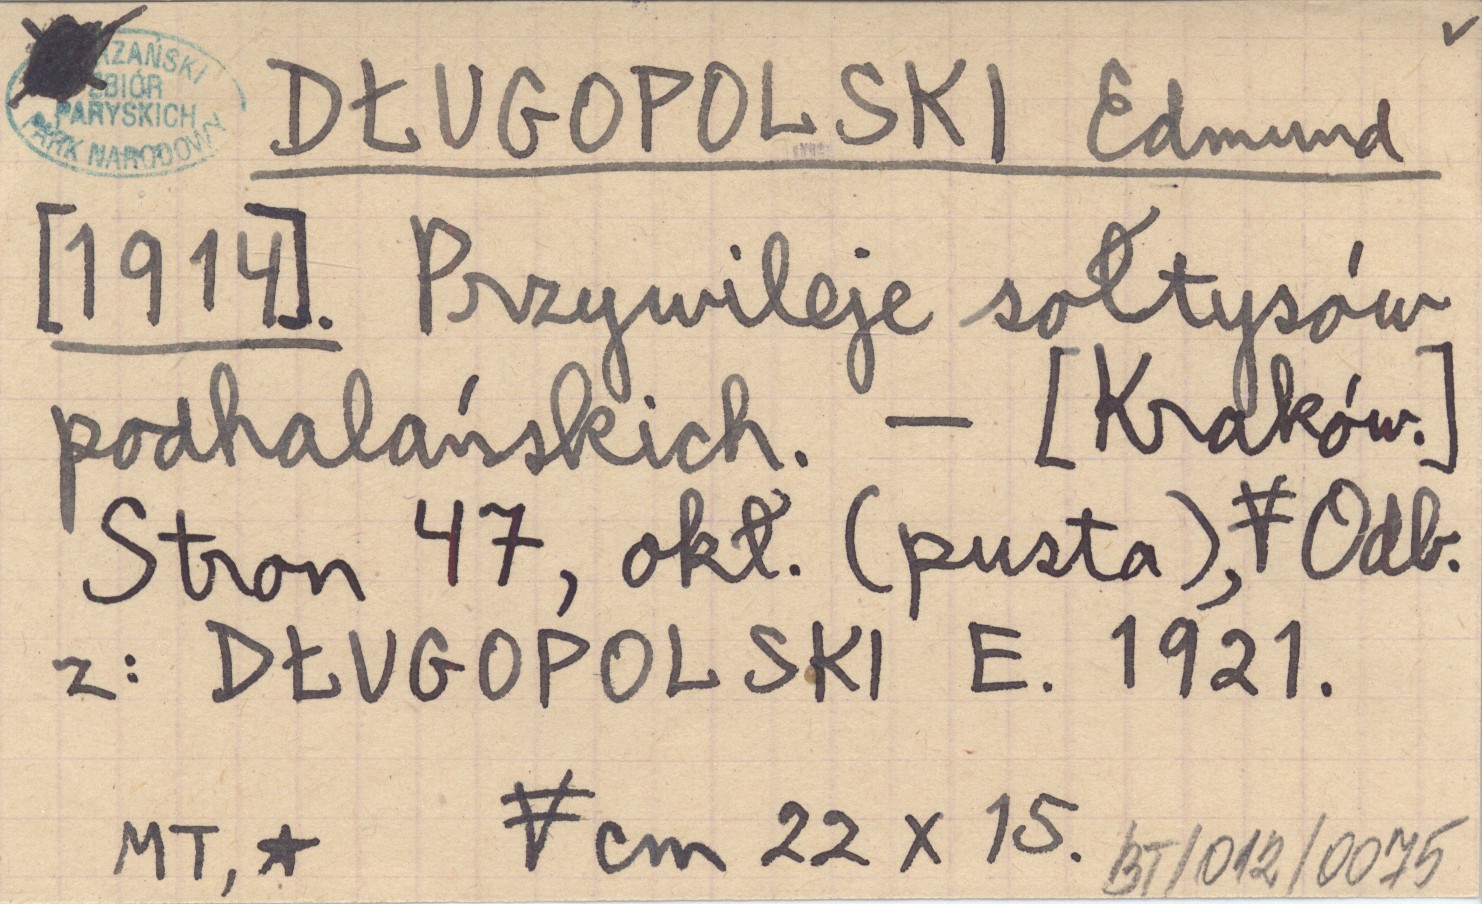 ZAŃSKI
ZBIÓR
PARYSKICH
PARK NARODOWY
DŁUGOPOLSKI Edmund
[1914]. Przywileje sołtysów
podhalańskich. — [Kraków.]
Stron 47, okł. (pusta), Odb.
z: DŁUGOPOLSKI E. 1921.
MT, ★ cm 22 x 15.
BT/012/0075